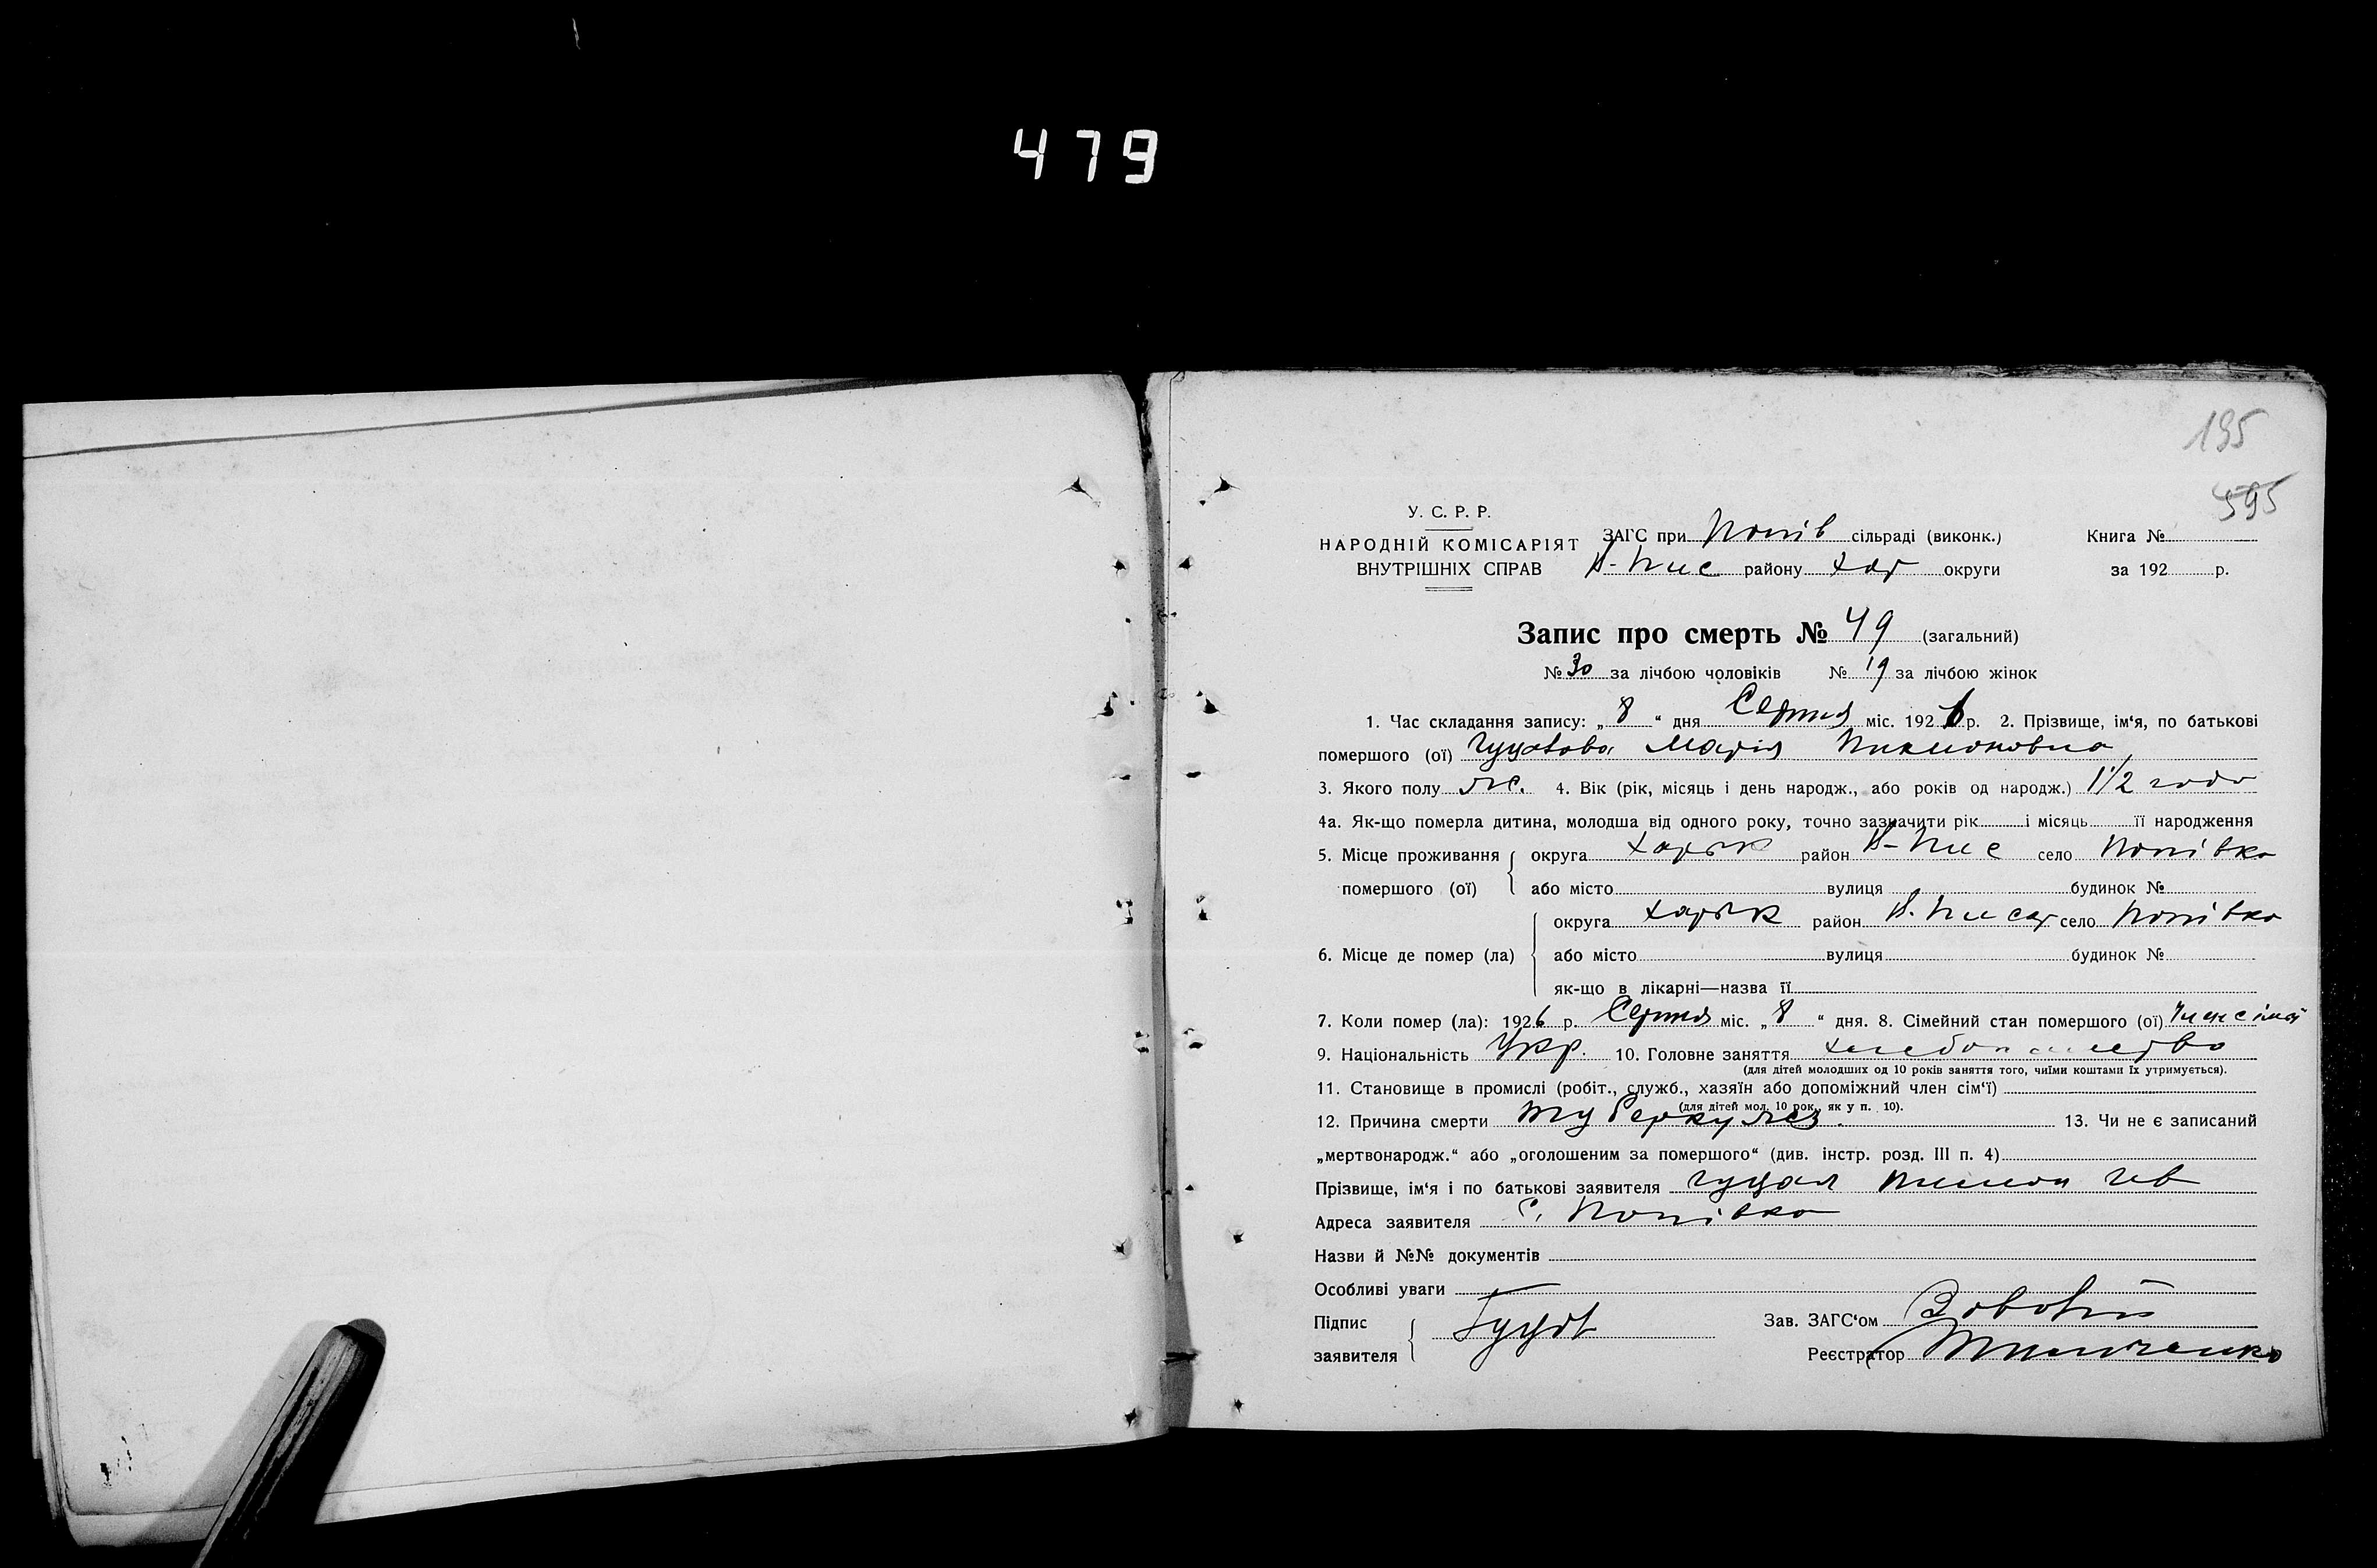 479
195
595
У. С. Р. Р.
НАРОДНІЙ КОМІСАРІЯТ
ВНУТРІШНІХ СПРАВ
ЗАГС при Попів сільраді (виконк.) Книга №
В-Пис району Хар округи за 192 р.
Запис про смерть № 49 (загальний)
№ 30 за лічбою чоловіків № 19 за лічбою жінок
1. Час складання запису: „ 8 “ дня Серпня міс. 1926 р. 2. Прізвище, ім‘я, по батькові
помершого (ої) Марія
3. Якого полу ж. 4. Вік (рік, місяць і день народж., або років од народж.) 1 1/2 года
4а. Як-що померла дитина, молодша від одного року, точно зазначити рік і місяць її народження
5. Місце проживання округа Харьк район В-Пис село Попівка
помершого (ої) або місто вулиця будинок №
6. Місце де помер (ла) округа Харьк район В.Писар село Попівка
або місто вулиця будинок №
як-що в лікарні—назва її
7. Коли помер (ла): 1926 р. Серпня міс. „ 8 “ дня. 8. Сімейний стан помершого (ої) член сімї
9. Національність Укр. 10. Головне заняття
(для дітей молодших од 10 років заняття того, чиїми коштами їх утримується).
11. Становище в промислі (робіт., служб., хазяїн або допоміжний член сім‘ї)
(для дітей мол. 10 рок., як у п. 10).
12. Причина смерти туберкульоз. 13. Чи не є записаний
„мертвонародж.“ або „оголошеним за помершого“ (див. інстр. розд. III п. 4)
Прізвище, ім‘я і по батькові заявителя
Адреса заявителя с. Попівка
Назви й №№ документів
Особливі уваги
Підпис
заявителя
Зав. ЗАГС‘ом
Реєстратор